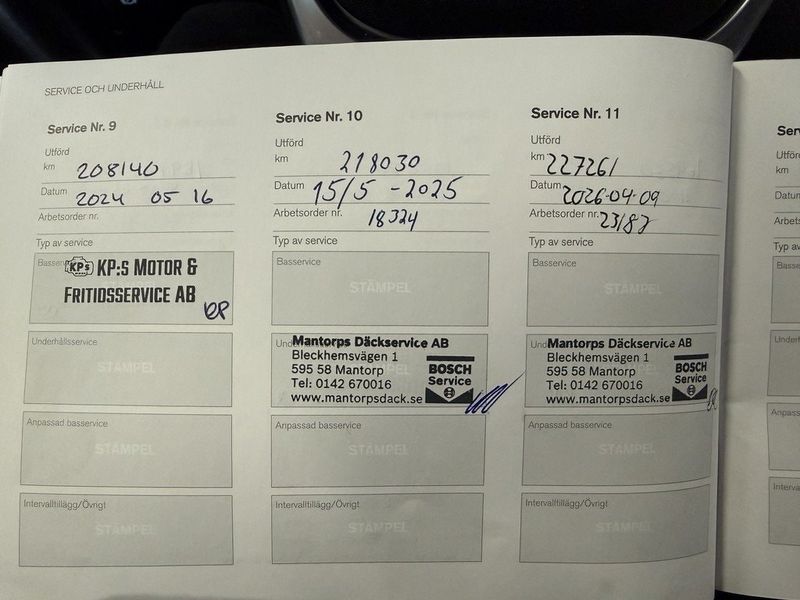 SERVICE OCH UNDERHÅLL
Service Nr. 9
Utförd
km 208140
Datum 2024 05 16
Arbetsorder nr.
Typ av service
Basservice
KP:s
KP:s MOTOR &
FRITIDSSERVICE AB
Underhållsservice
STÄMPEL
Anpassad basservice
STÄMPEL
Intervalltillägg/Övrigt
STÄMPEL
Service Nr. 10
Utförd
km 218030
Datum 15/5 - 2025
Arbetsorder nr. 18324
Typ av service
Basservice
STÄMPEL
Mantorps Däckservice AB
Bleckhemsvägen 1
595 58 Mantorp
Tel: 0142 670016
www.mantorpsdack.se
BOSCH
Service
Anpassad basservice
STÄMPEL
Intervalltillägg/Övrigt
STÄMPEL
Service Nr. 11
Utförd
km 227261
Datum 2026-04-09
Arbetsorder nr. 23187
Typ av service
Basservice
STÄMPEL
Mantorps Däckservice AB
Bleckhemsvägen 1
595 58 Mantorp
Tel: 0142 670016
www.mantorpsdack.se
BOSCH
Service
Anpassad basservice
STÄMPEL
Intervalltillägg/Övrigt
STÄMPEL
Utförd
km